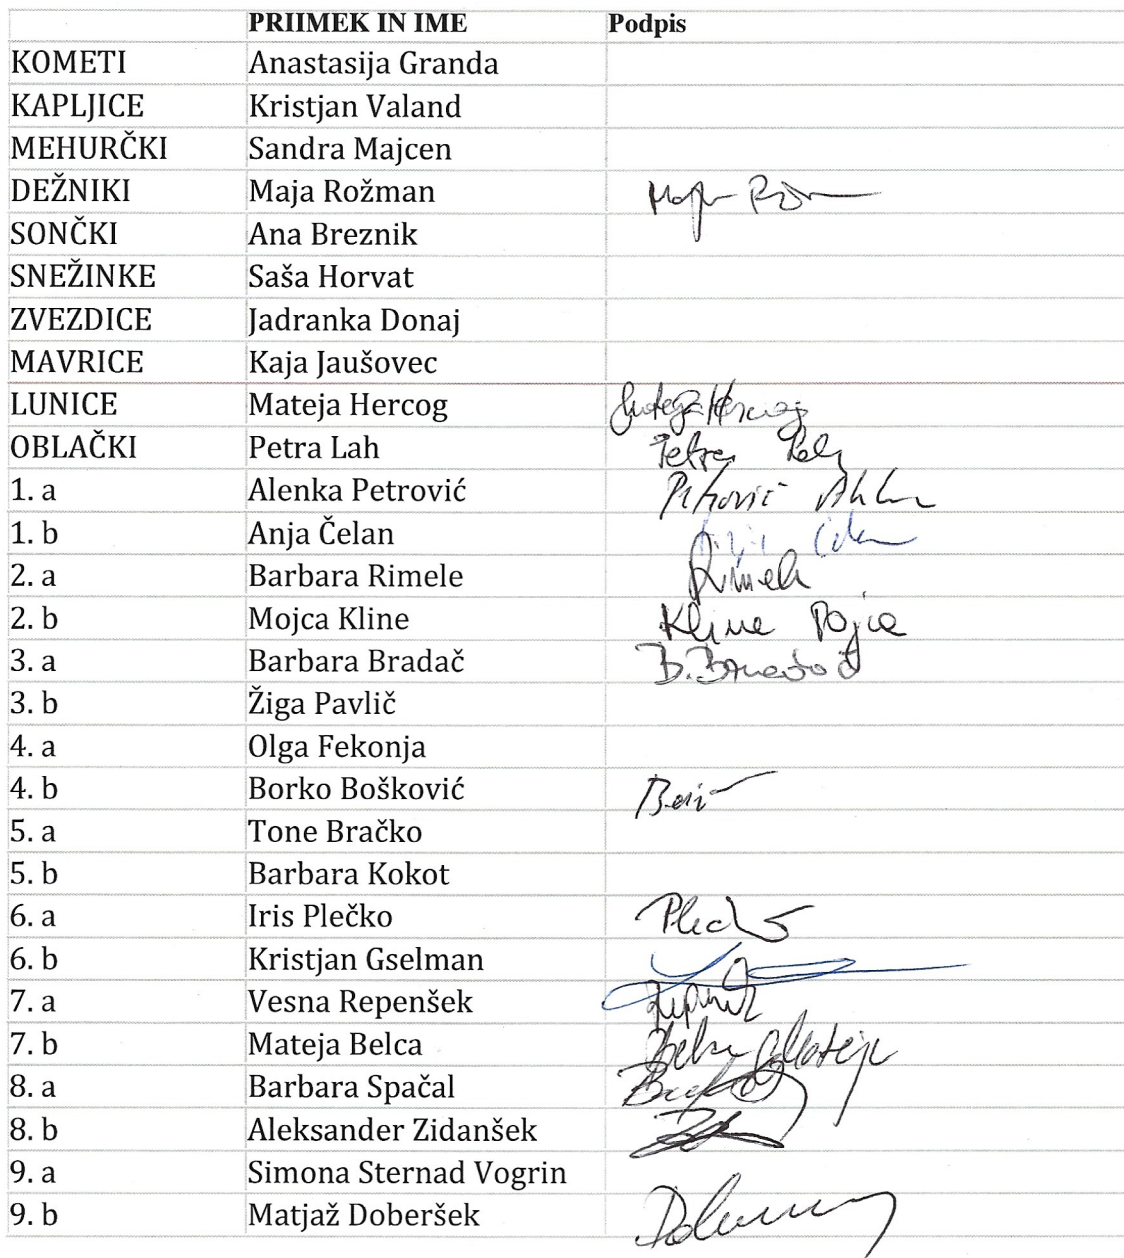 PRIIMEK IN IME Podpis
KOMETI Anastasija Granda
KAPLJICE Kristjan Valand
MEHURČKI Sandra Majcen
DEŽNIKI Maja Rožman Maja
SONČKI Ana Breznik
SNEŽINKE Saša Horvat
ZVEZDICE Jadranka Donaj
MAVRICE Kaja Jaušovec
LUNICE Mateja Hercog Mateja Hercog
OBLAČKI Petra Lah Petra Lah
1. a Alenka Petrović Petrović
1. b Anja Čelan
2. a Barbara Rimele Rimele
2. b Mojca Kline Kline Mojca
3. a Barbara Bradač B. Bradač
3. b Žiga Pavlič
4. a Olga Fekonja
4. b Borko Bošković
5. a Tone Bračko
5. b Barbara Kokot
6. a Iris Plečko Plečko
6. b Kristjan Gselman
7. a Vesna Repenšek
7. b Mateja Belca Belca Mateja
8. a Barbara Spačal
8. b Aleksander Zidanšek
9. a Simona Sternad Vogrin
9. b Matjaž Doberšek